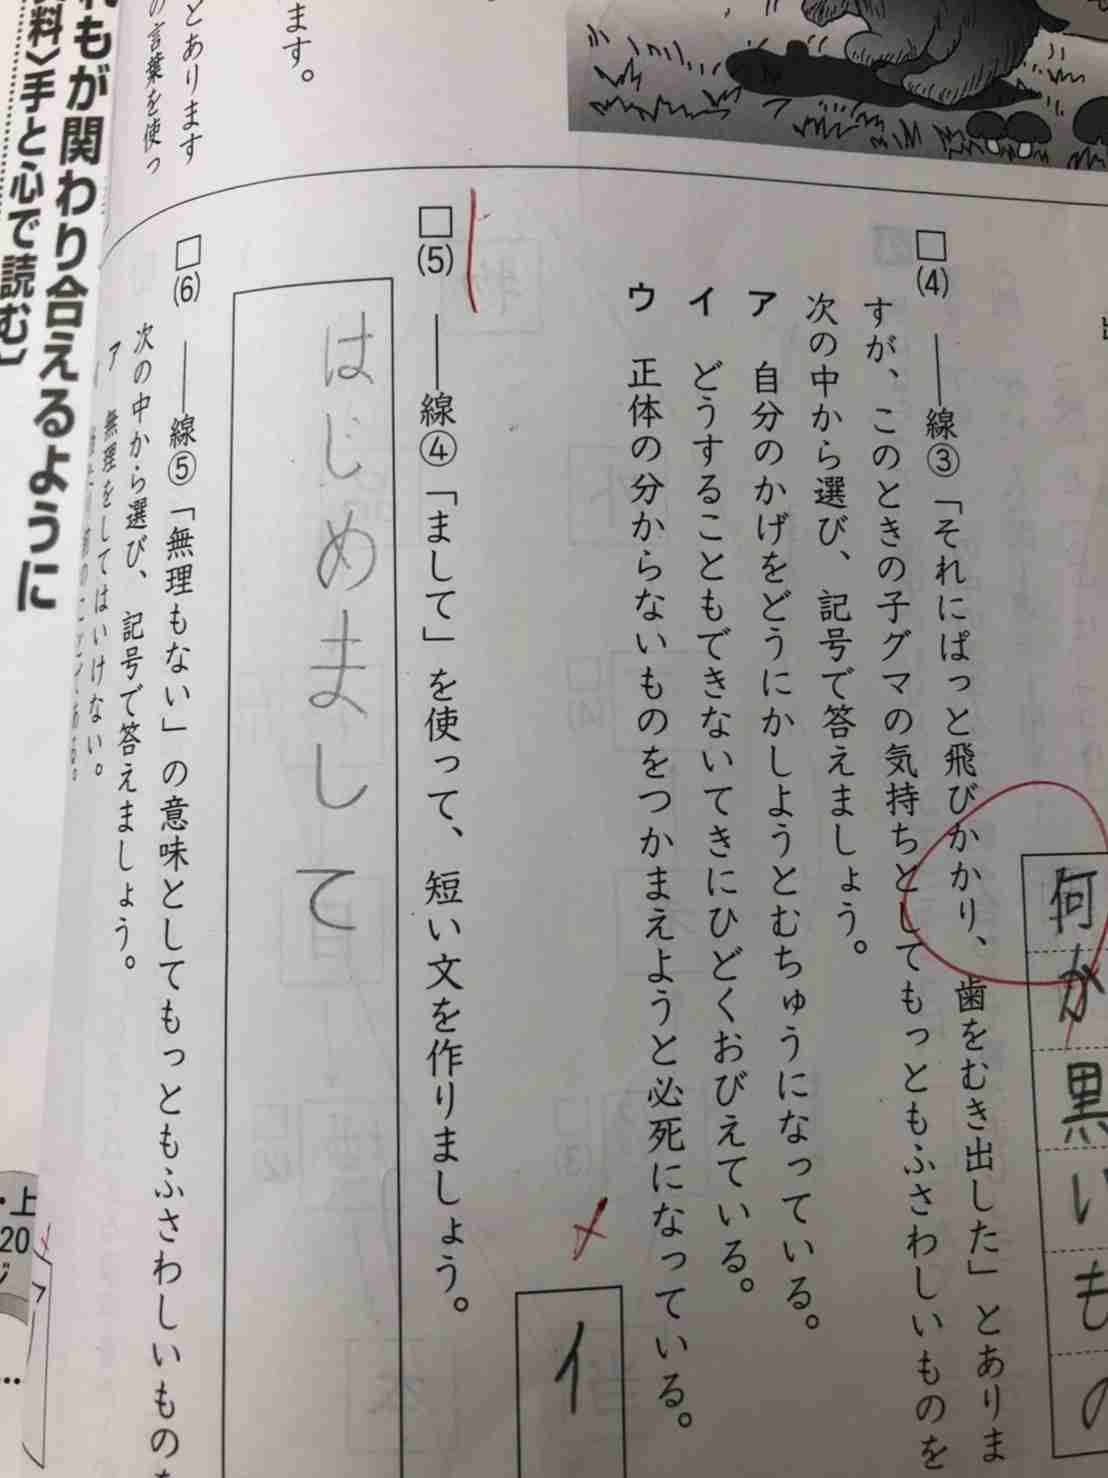 ます。
とあります
の言葉を使っ
何か黒いもの
(4) ――線③「それにぱっと飛びかかり、歯をむき出した」とありま
すが、このときの子グマの気持ちとしてもっともふさわしいものを
次の中から選び、記号で答えましょう。
ア 自分のかげをどうにかしようとむちゅうになっている。
イ どうすることもできないてきにひどくおびえている。
ウ 正体の分からないものをつかまえようと必死になっている。
イ
(5) ――線④「まして」を使って、短い文を作りましょう。
はじめまして
(6) ――線⑤「無理もない」の意味としてもっともふさわしいものを
次の中から選び、記号で答えましょう。
ア 無理をしてはいけない。
もが関わり合えるように
料〉手と心で読む〕
・上
20